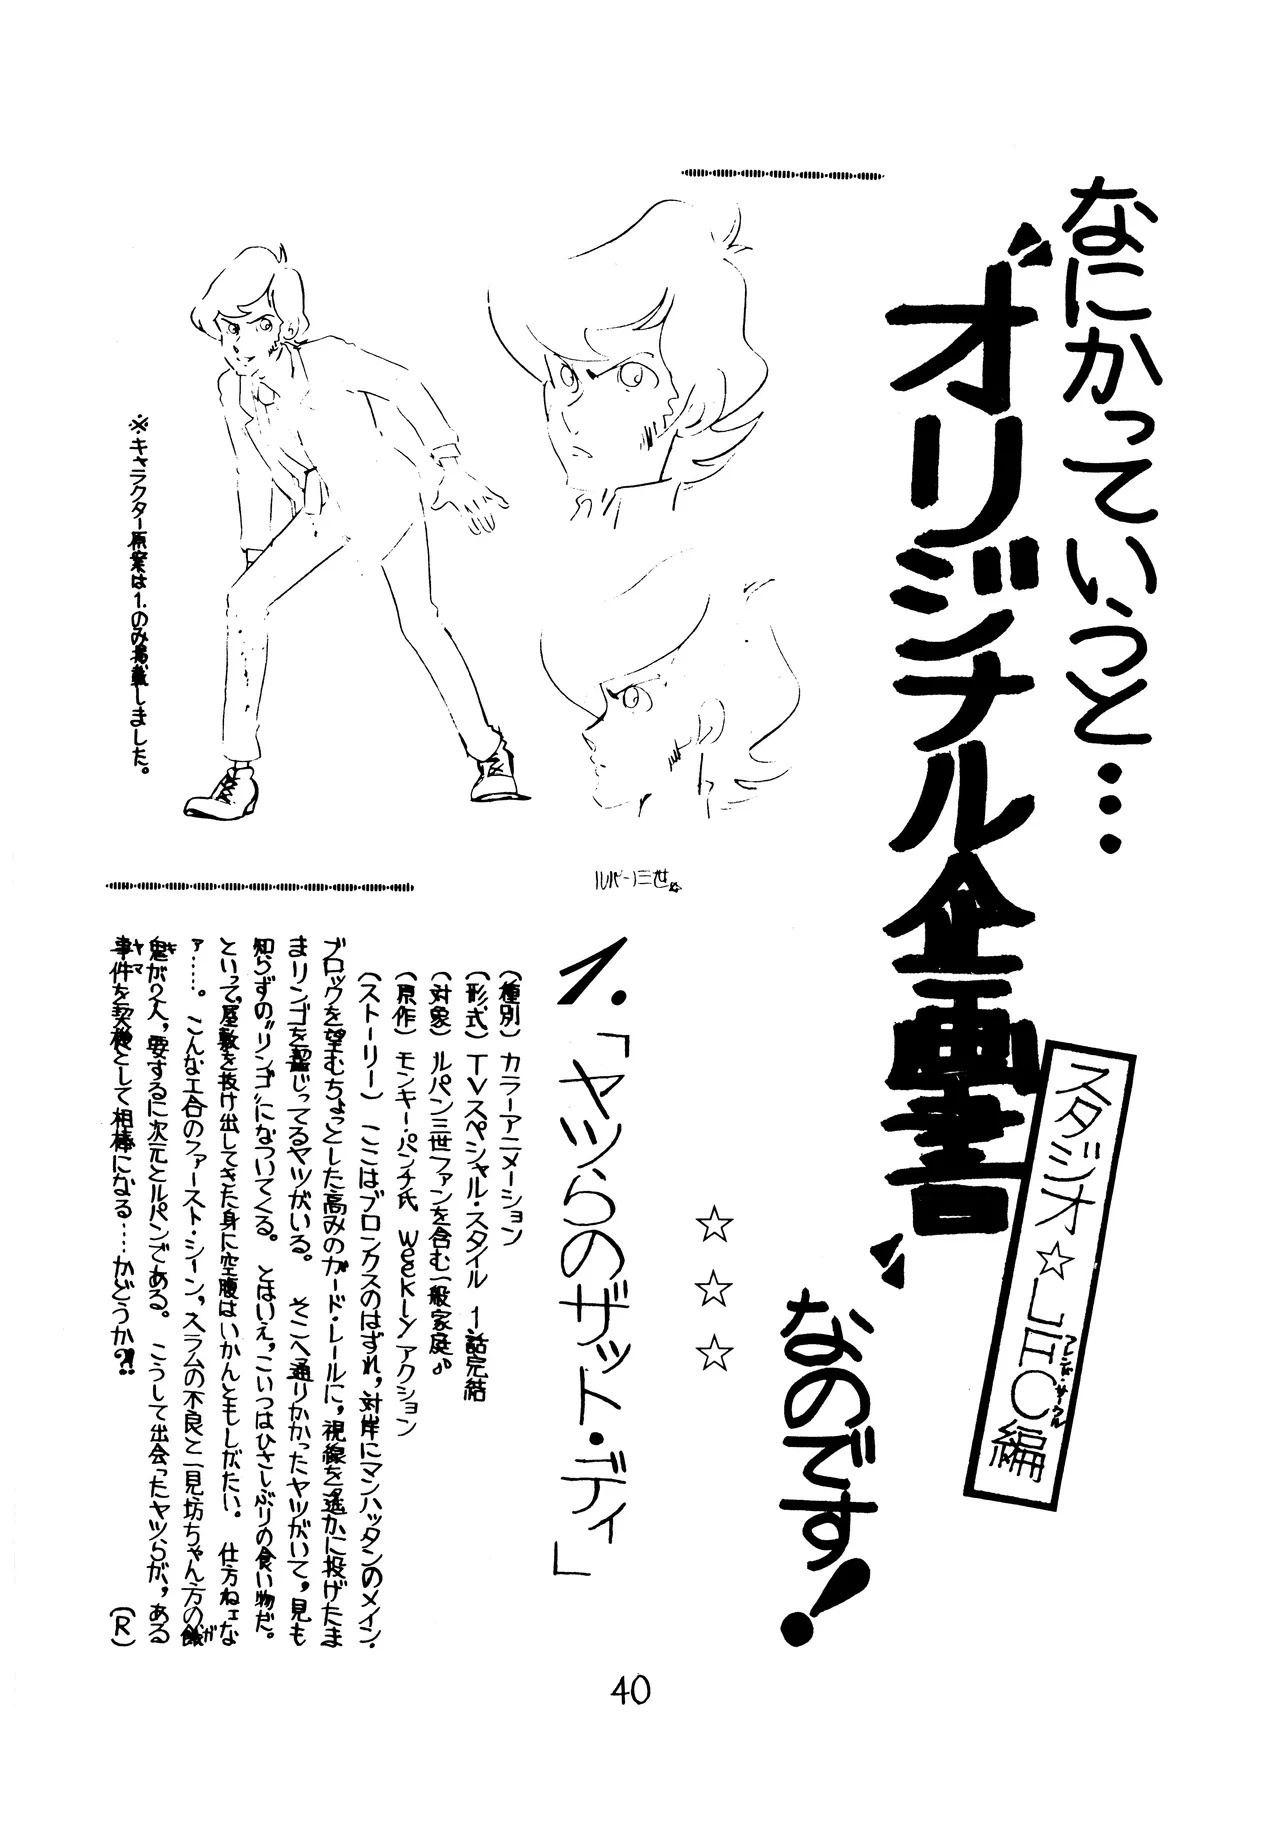 なにかっていうと…
"オリジナル企画書"
スタジオ☆LHC編
フレンド・サークル
なのです！
☆☆☆
※キャラクター原案は1.のみ掲載しました。
ルパン三世
1.「ヤツらのザット・ディ」
（種別）カラーアニメーション
（形式）TVスペシャル・スタイル 1話完結
（対象）ルパン三世ファンを含む一般家庭♪
（原作）モンキー・パンチ氏 Weeklyアクション
（ストーリー）ここはブロンクスのはずれ，対岸にマンハッタンのメイン・
ブロックを望むちょっとした高みのガード・レールに，視線を遙かに投げたま
まリンゴを齧じってるヤツがいる。 そこへ通りかかったヤツがいて，見も
知らずの"リンゴ"になついてくる。 とはいえ，こいつはひさしぶりの食い物だ。
といって，屋敷を抜け出してきた身に空腹はいかんともしがたい。 仕方ねェな
ァ……。 こんな工合のファースト・シーン，スラムの不良と一見坊ちゃん方の餓ガ
鬼キが2人，要するに次元とルパンである。 こうして出会ったヤツらが，ある
事件ヤマを契機として相棒になる……かどうか⁈
（R）
40